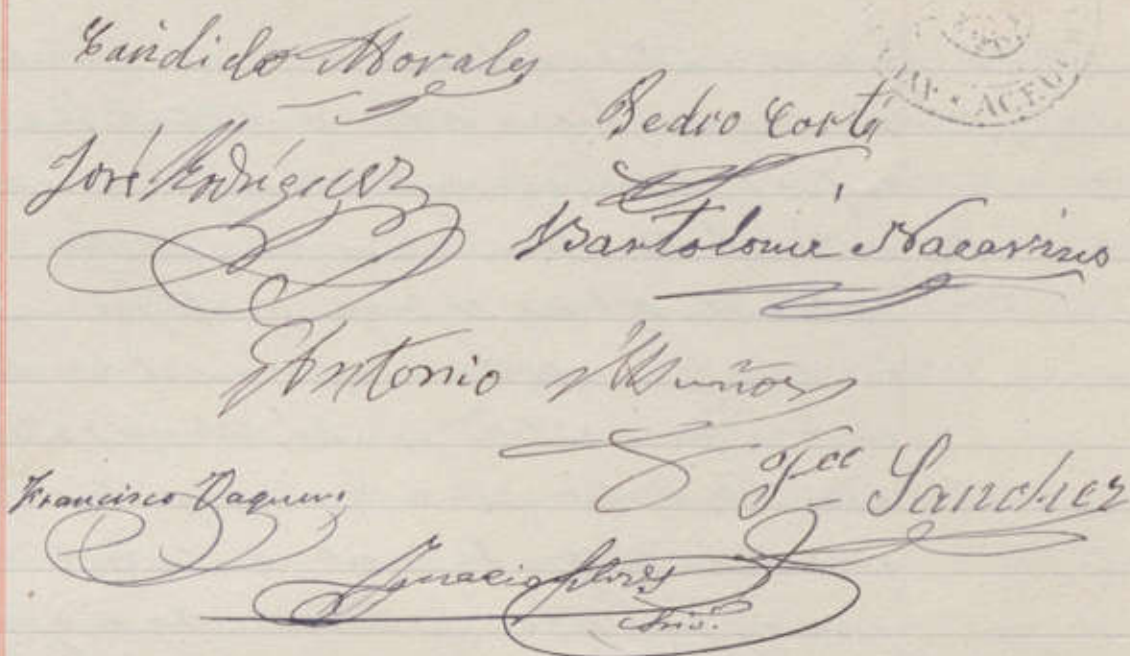 Candido Morales
Pedro Cortés
José Rodríguez
Bartolomé Nacarino
Antonio Muñoz
Fco Sanchez
Francisco Vaquero
Ignacio Flores
Srio.